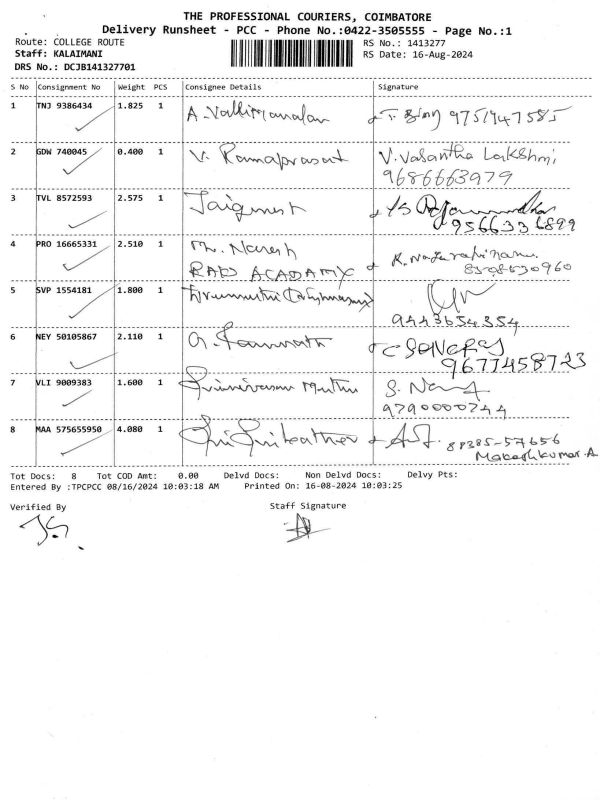 THE PROFESSIONAL COURIERS, COIMBATORE
Delivery Runsheet - PCC - Phone No.:0422-3505555 - Page No.:1
Route: COLLEGE ROUTE RS No.: 1413277
Staff: KALAIMANI RS Date: 16-Aug-2024
DRS No.: DCJB141327701
S No Consignment No Weight PCS Consignee Details Signature
1 TNJ 9386434 1.825 1 A. 9751947585
2 GDW 740045 0.400 1 V. Ramaprasat V. Vasantha Lakshmi,
9686663979
3 TVL 8572593 2.575 1 Jaiganesh
9566336899
4 PRO 16665331 2.510 1 Mr. Naresh K.
RAO ACADAMY 8508530960
5 SVP 1554181 1.800 1
9443654354
6 NEY 50105867 2.110 1 G.
9677458723
7 VLI 9009383 1.600 1 Srinivasan Muthu S.
9790000744
8 MAA 575655950 4.080 1 88385-57656
Makeshkumar.A
Tot Docs: 8 Tot COD Amt: 0.00 Delvd Docs: Non Delvd Docs: Delvy Pts:
Entered By :TPCPCC 08/16/2024 10:03:18 AM Printed On: 16-08-2024 10:03:25
Verified By Staff Signature